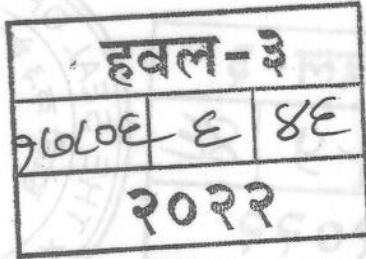 हवल-३
१७८०६ ६ ४६
२०२२